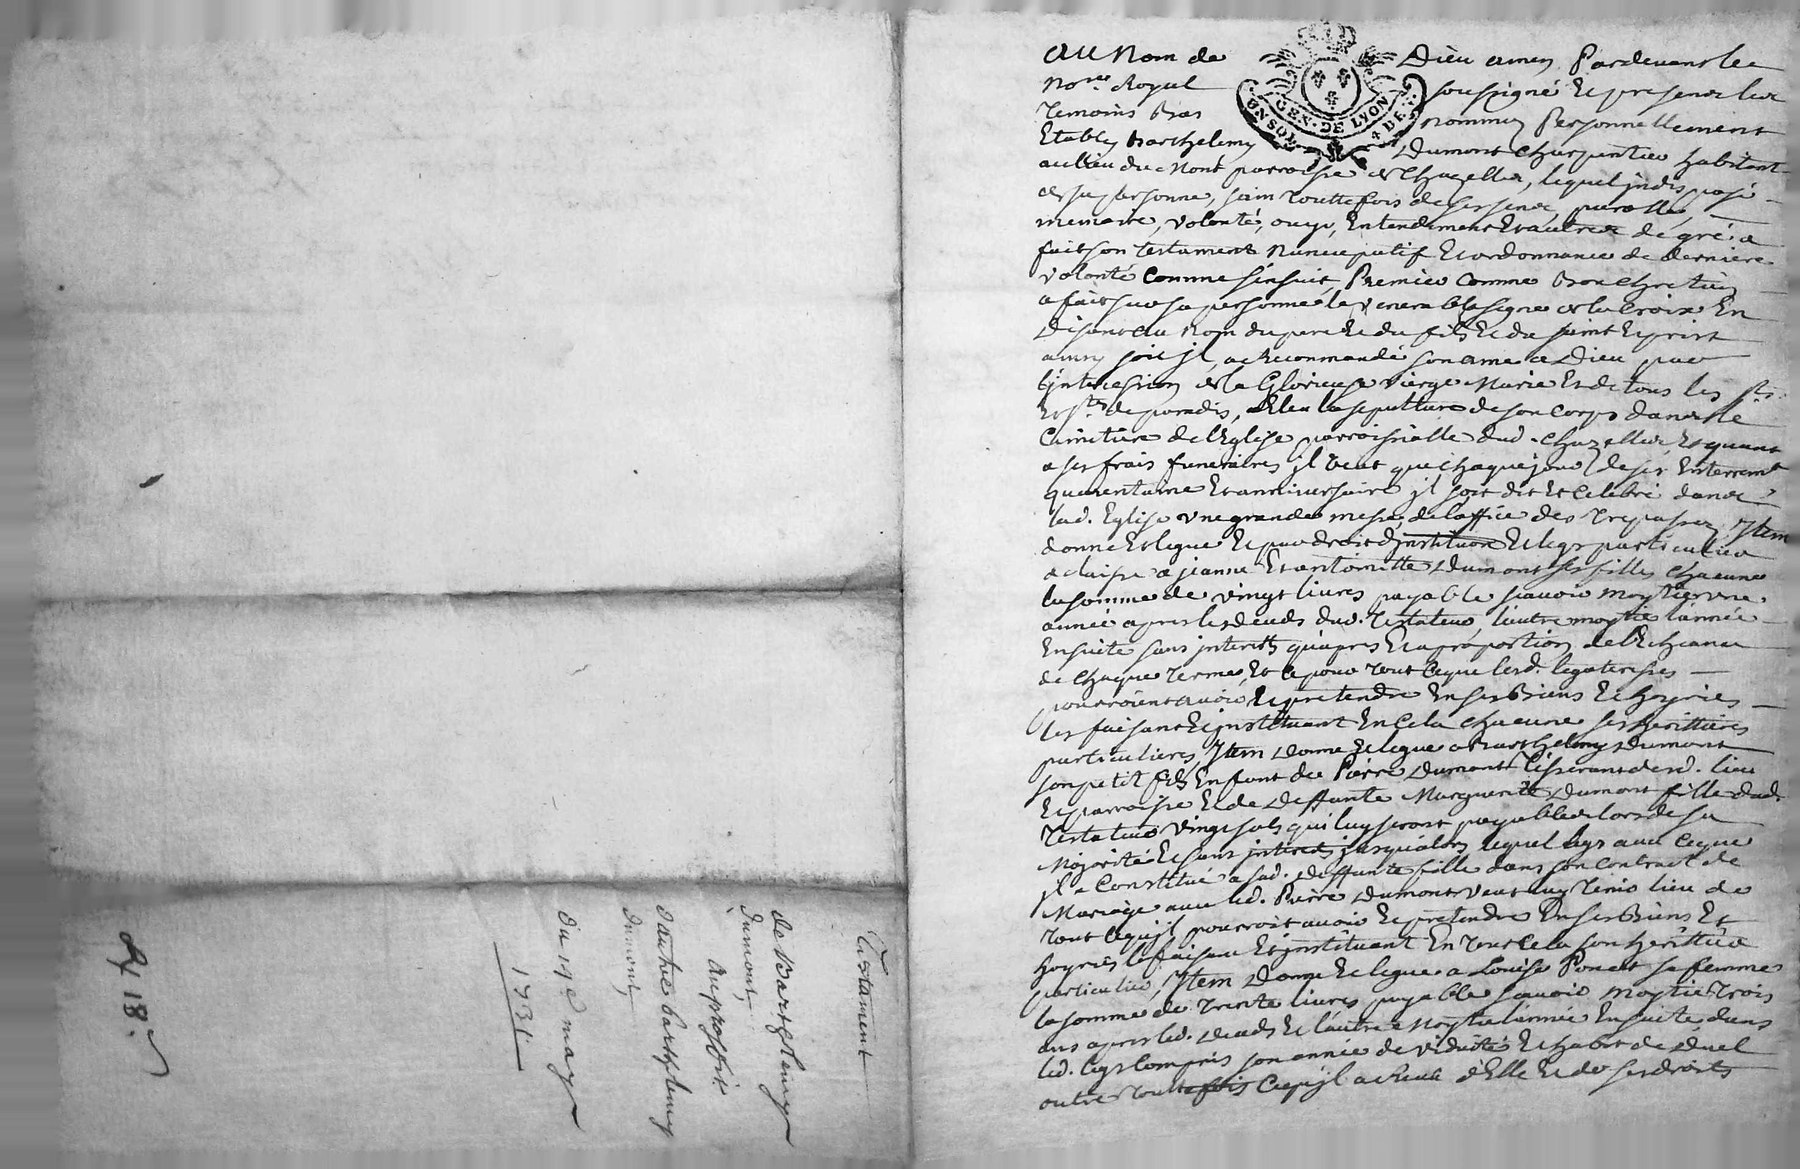 Testament
de Barthelemy
dumont
au proffit
d'autre barthelemy
dumont
du 14e may
1731
n 18.
GEN. DE LYON
4 DE
Au Nom de Dieu amen Pardevant le
no.re Royal soussigné Et presence des
Temoins Bas nommez Personnellement
Etably Barthelemy Dumont charpentier habitant
au lieu du Mont parroisse de Chazelles, lequel jndisposé
de sa personne, sain Touttefois de ses sens, parolle
memoire, volonté, ouye, Entendement Et autres de gré a
fait son Testament Nuncupatif Et ordonnance de derniere
volonté comme s'ensuit, Premier comme bon chretien
a fait sur sa personne le venerable signe de la Croix En
Disant au Nom du pere Et du fils Et du saint Esprit
amen soit jl, a Recommandé son ame a Dieu par
l'jntercession de la Glorieuse vierge Marie Et de tous les sts.
Et stes de paradis, Eleu la sepulture de son corps dans le
Cimetiere de l'Eglise parroissialle dud. Chazelles, Et quant
a ses frais funeraires jl veut que chaque jour de ses Enterremt
quarentaine Et anniversaire jl soit dit Et celebré dans
lad. Eglise une grande messe de l'office des Trepassez, Jtem
donne Et legue Et par droit d'jnstitution Et legs particulier
a claire a jeanne Et antoinette Dumont ses filles chacune
la somme de vingt livres payable scavoir moytié une
année apres le deceds dud. Testateur, l'autre moytié l'année
Ensuite sans jnterets qu'apres Et a proportion de l'Echeance
de chaque Terme, Et ce pour Tout ce que lesd. legataresses
pourroient avoir Et pretendre En ses Biens Et hoyries
les faisant Et jnstituant En cela chacune ses herittieres
particulieres, Jtem Donne Et legue a Barthelemy Dumont
son petit fils Enfant de Pierre Dumont Tisserant dud. lieu
Et parroisse Et de Deffunte Marguerite Dumont fille dud.
Testateur vingt sols qui luy seront payables lors de sa
Majorité Et sans jnterets jusqu'alors lequel legs avec ce que
jl a Constitué a sad. Deffunte fille dans son contract de
Mariage avec led. Pierre Dumont veut luy Tenir lieu de
Tout ce qu'jl pourroit avoir Et pretendre En ses Biens Et
hoyries le faisant Et jnstituant En Tout cela son herittier
particulier, Jtem Donne Et legue a Louise Poncet sa femme
la somme de Trente livres payable scavoir moytié Trois
ans apres led. Deceds Et l'autre Moytié l'année Ensuite dans
led. legs compris son année de viduité Et habit de Duel
outre Touttefois ce qu'jl a d'Elle Et de ses droits